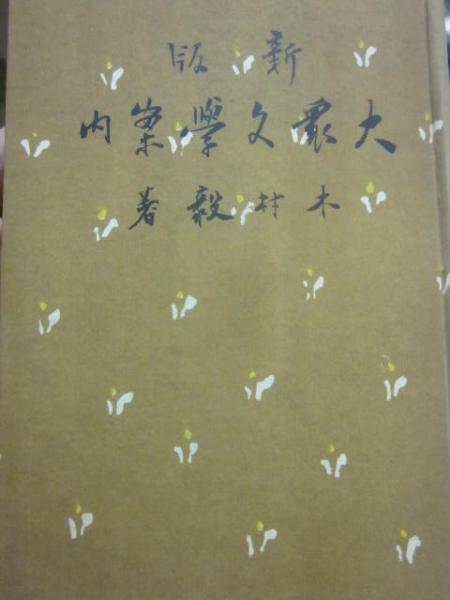 新版
大衆文學案内
木村毅著